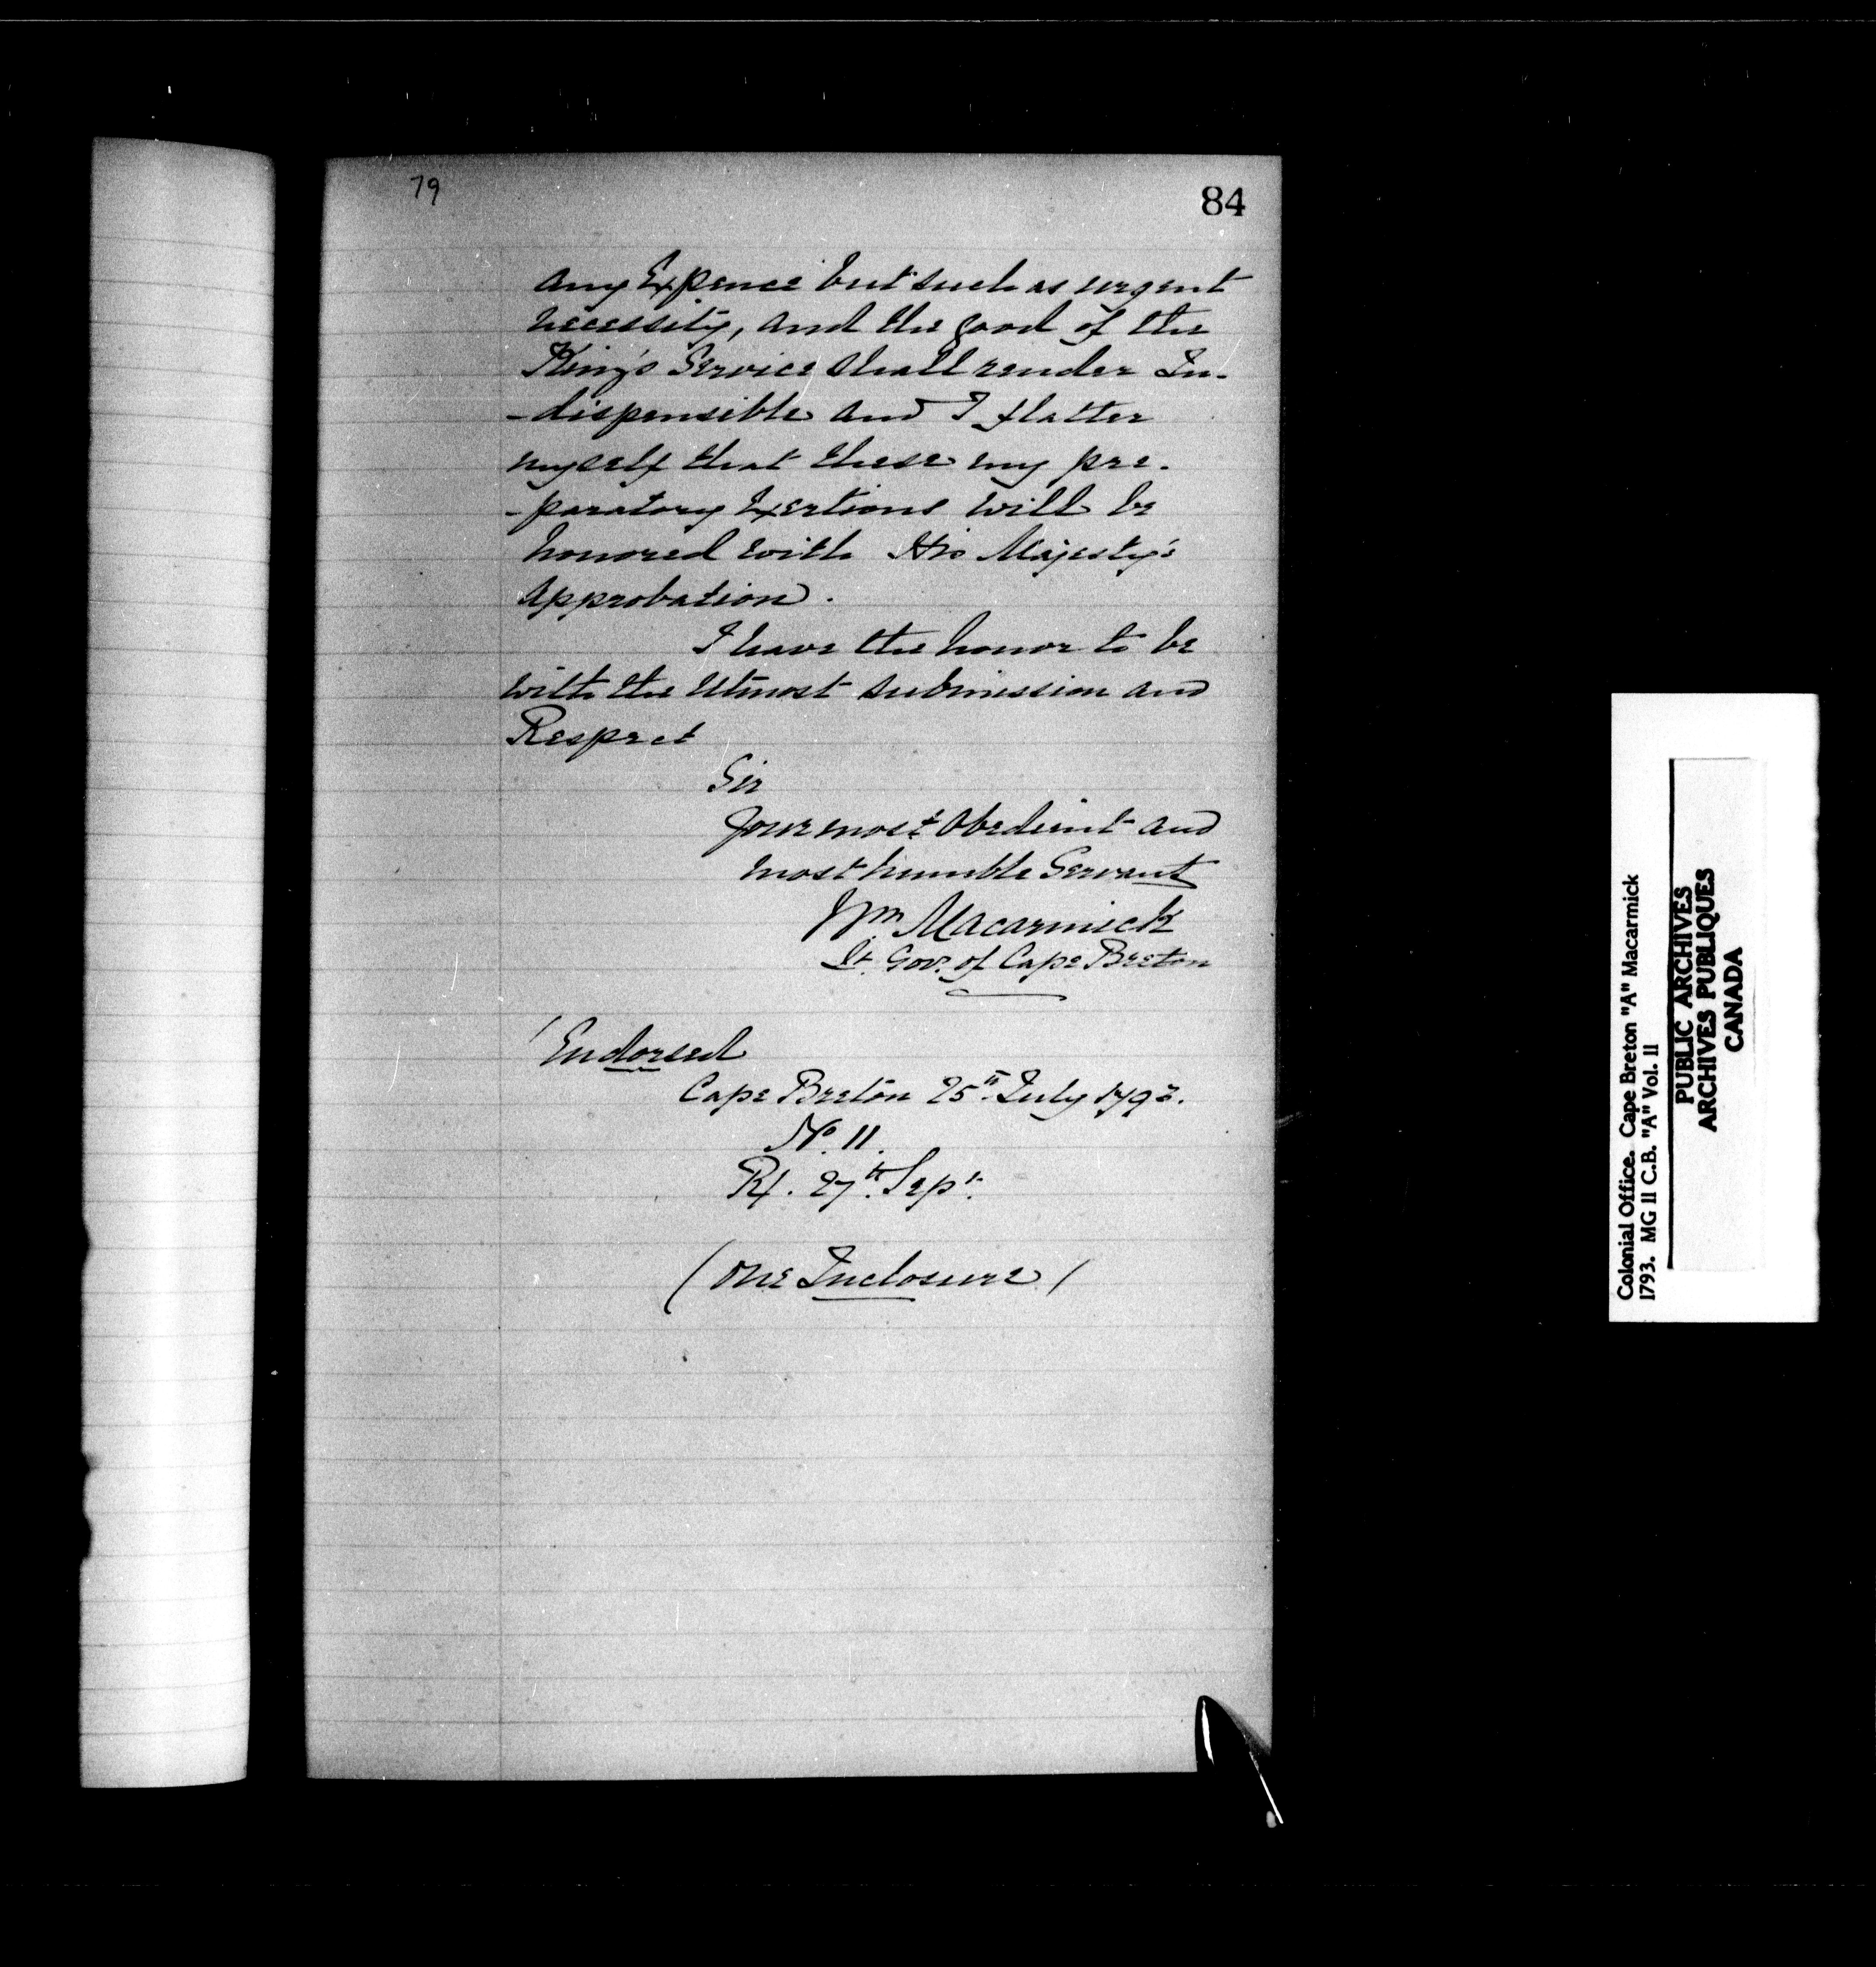 79
84
any Expence but such as urgent
necessity, and the good of the
King's Service shall render In-
-dispensible and I flatter
myself that these my pre-
-paratory Exertions will be
honored with His Majesty's
Approbation.
I have the honor to be
with the Utmost submission and
Respect
Sir
Your most Obedient and
most humble Servant
Wm Macarmick
Lt. Govr. of Cape Breton
Endorsed
Cape Breton 25th July 1793.
No. 11.
Rx. 27th Sept.
(One Inclosure)
Colonial Office. Cape Breton "A" Macarmick
1793. MG 11 C.B. "A" Vol. 11
PUBLIC ARCHIVES
ARCHIVES PUBLIQUES
CANADA